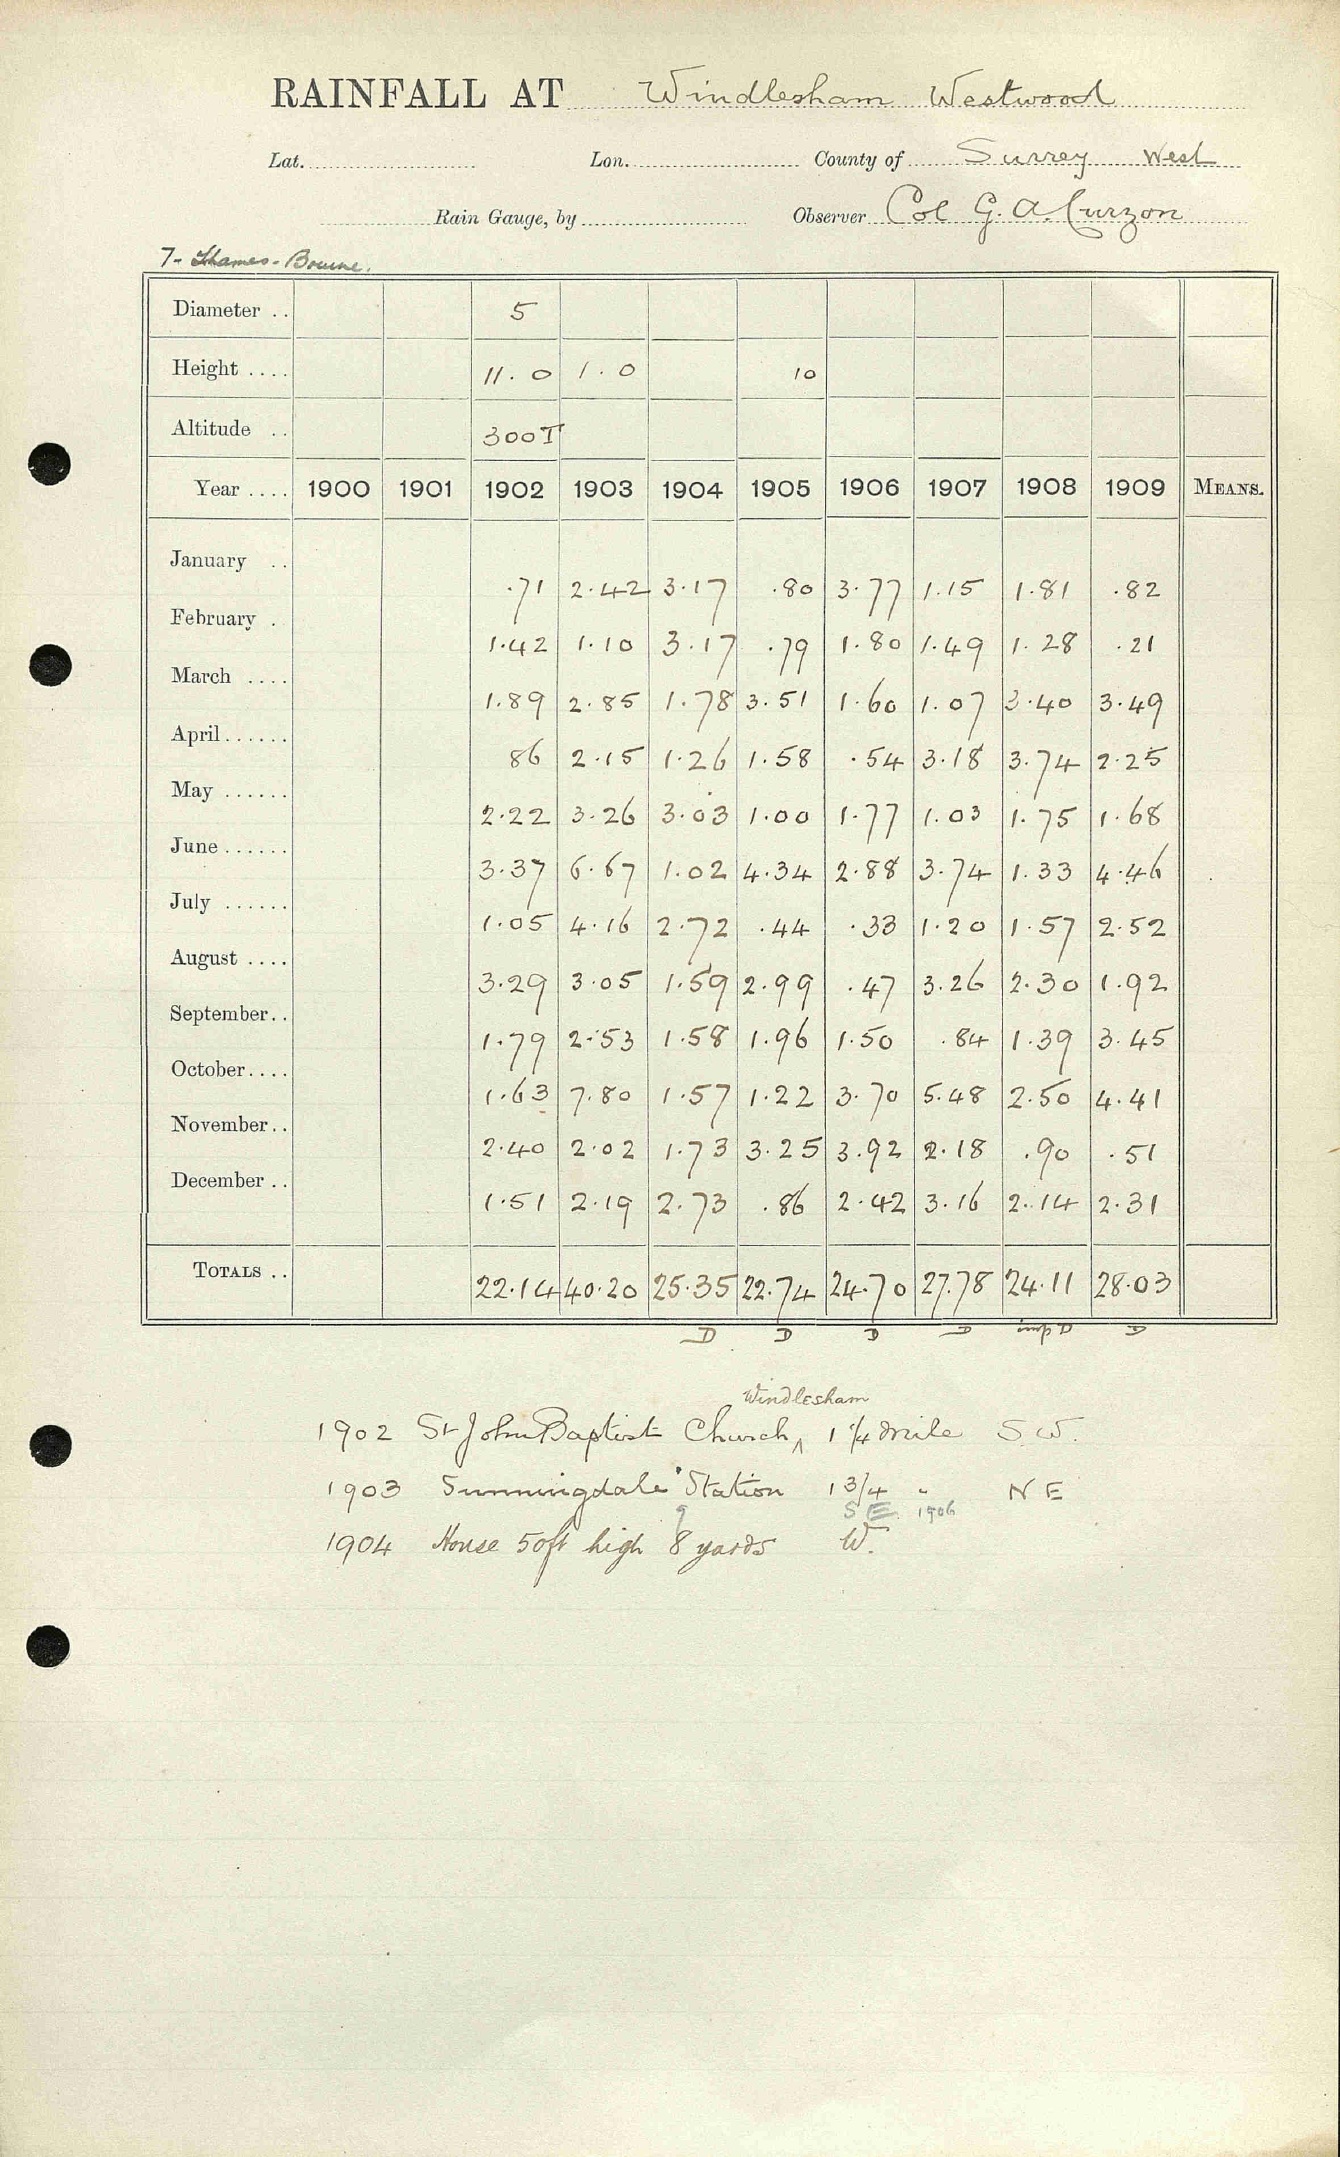 RAINFALL AT Windlesham Westwood
Lat. Lon. County of Surrey West
Rain Gauge, by Observer Col G. A. Curzon
7- Thames - Bourne.
Diameter .. 5
Height .... 11. 0 1. 0 10
Altitude .. 300 T
Year .... 1900 1901 1902 1903 1904 1905 1906 1907 1908 1909 MEANS.
January .. .71 2.42 3.17 .80 3.77 1.15 1.81 .82
February . 1.42 1.10 3.17 .79 1.80 1.49 1.28 .21
March .... 1.89 2.85 1.78 3.51 1.60 1.07 3.40 3.49
April...... 86 2.15 1.26 1.58 .54 3.18 3.74 2.25
May ...... 2.22 3.26 3.03 1.00 1.77 1.03 1.75 1.68
June...... 3.37 6.67 1.02 4.34 2.88 3.74 1.33 4.46
July ...... 1.05 4.16 2.72 .44 .33 1.20 1.57 2.52
August .... 3.29 3.05 1.59 2.99 .47 3.26 2.30 1.92
September.. 1.79 2.53 1.58 1.96 1.50 .84 1.39 3.45
October.... 1.63 7.80 1.57 1.22 3.70 5.48 2.50 4.41
November.. 2.40 2.02 1.73 3.25 3.92 2.18 .90 .51
December .. 1.51 2.19 2.73 .86 2.42 3.16 2.14 2.31
TOTALS .. 22.14 40.20 25.35 22.74 24.70 27.78 24.11 28.03
D D D D imp D D
Windlesham
1902 St John Baptist Church ^ 1 1/4 mile S.W.
1903 Sunningdale Station 1 3/4 " N E
9 S E. 1906
1904 House 50ft high 8 yards W.